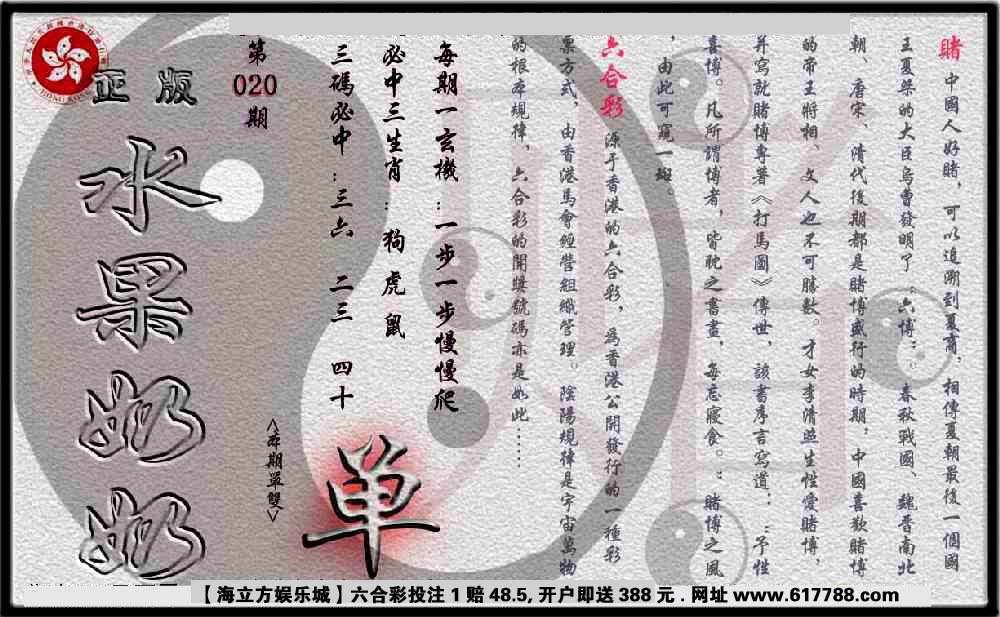 賭 中國人好賭，可以追溯到夏商，相傳夏朝最後一個國
王夏桀的大臣烏曹發明了“六博”；春秋戰國、魏晉南北
朝、唐宋、清代後期都是賭博盛行的時期，中國喜歡賭博
的帝王將相、文人也不可勝數。才女李清照生性愛賭博，
并寫就賭博專著《打馬圖》傳世，該書序言寫道：“予性
喜博。凡所謂博者，皆耽之晝，每忘寢食。”賭博之風
，由此可窺一斑。
六合彩 源于香港的六合彩，為香港公開發行的一種彩
票方式，由香港馬會經營組織管理。陰陽規律是宇宙萬物
的根本規律，六合彩的開獎號碼亦是如此……
每期一玄機：一步一步慢慢爬
必中三生肖：狗 虎 鼠
三碼必中：三六 二三 四十
第
020
期
正版
水果奶奶
<本期單雙>
单
【海立方娱乐城】六合彩投注1赔48.5,开户即送388元.网址www.617788.com